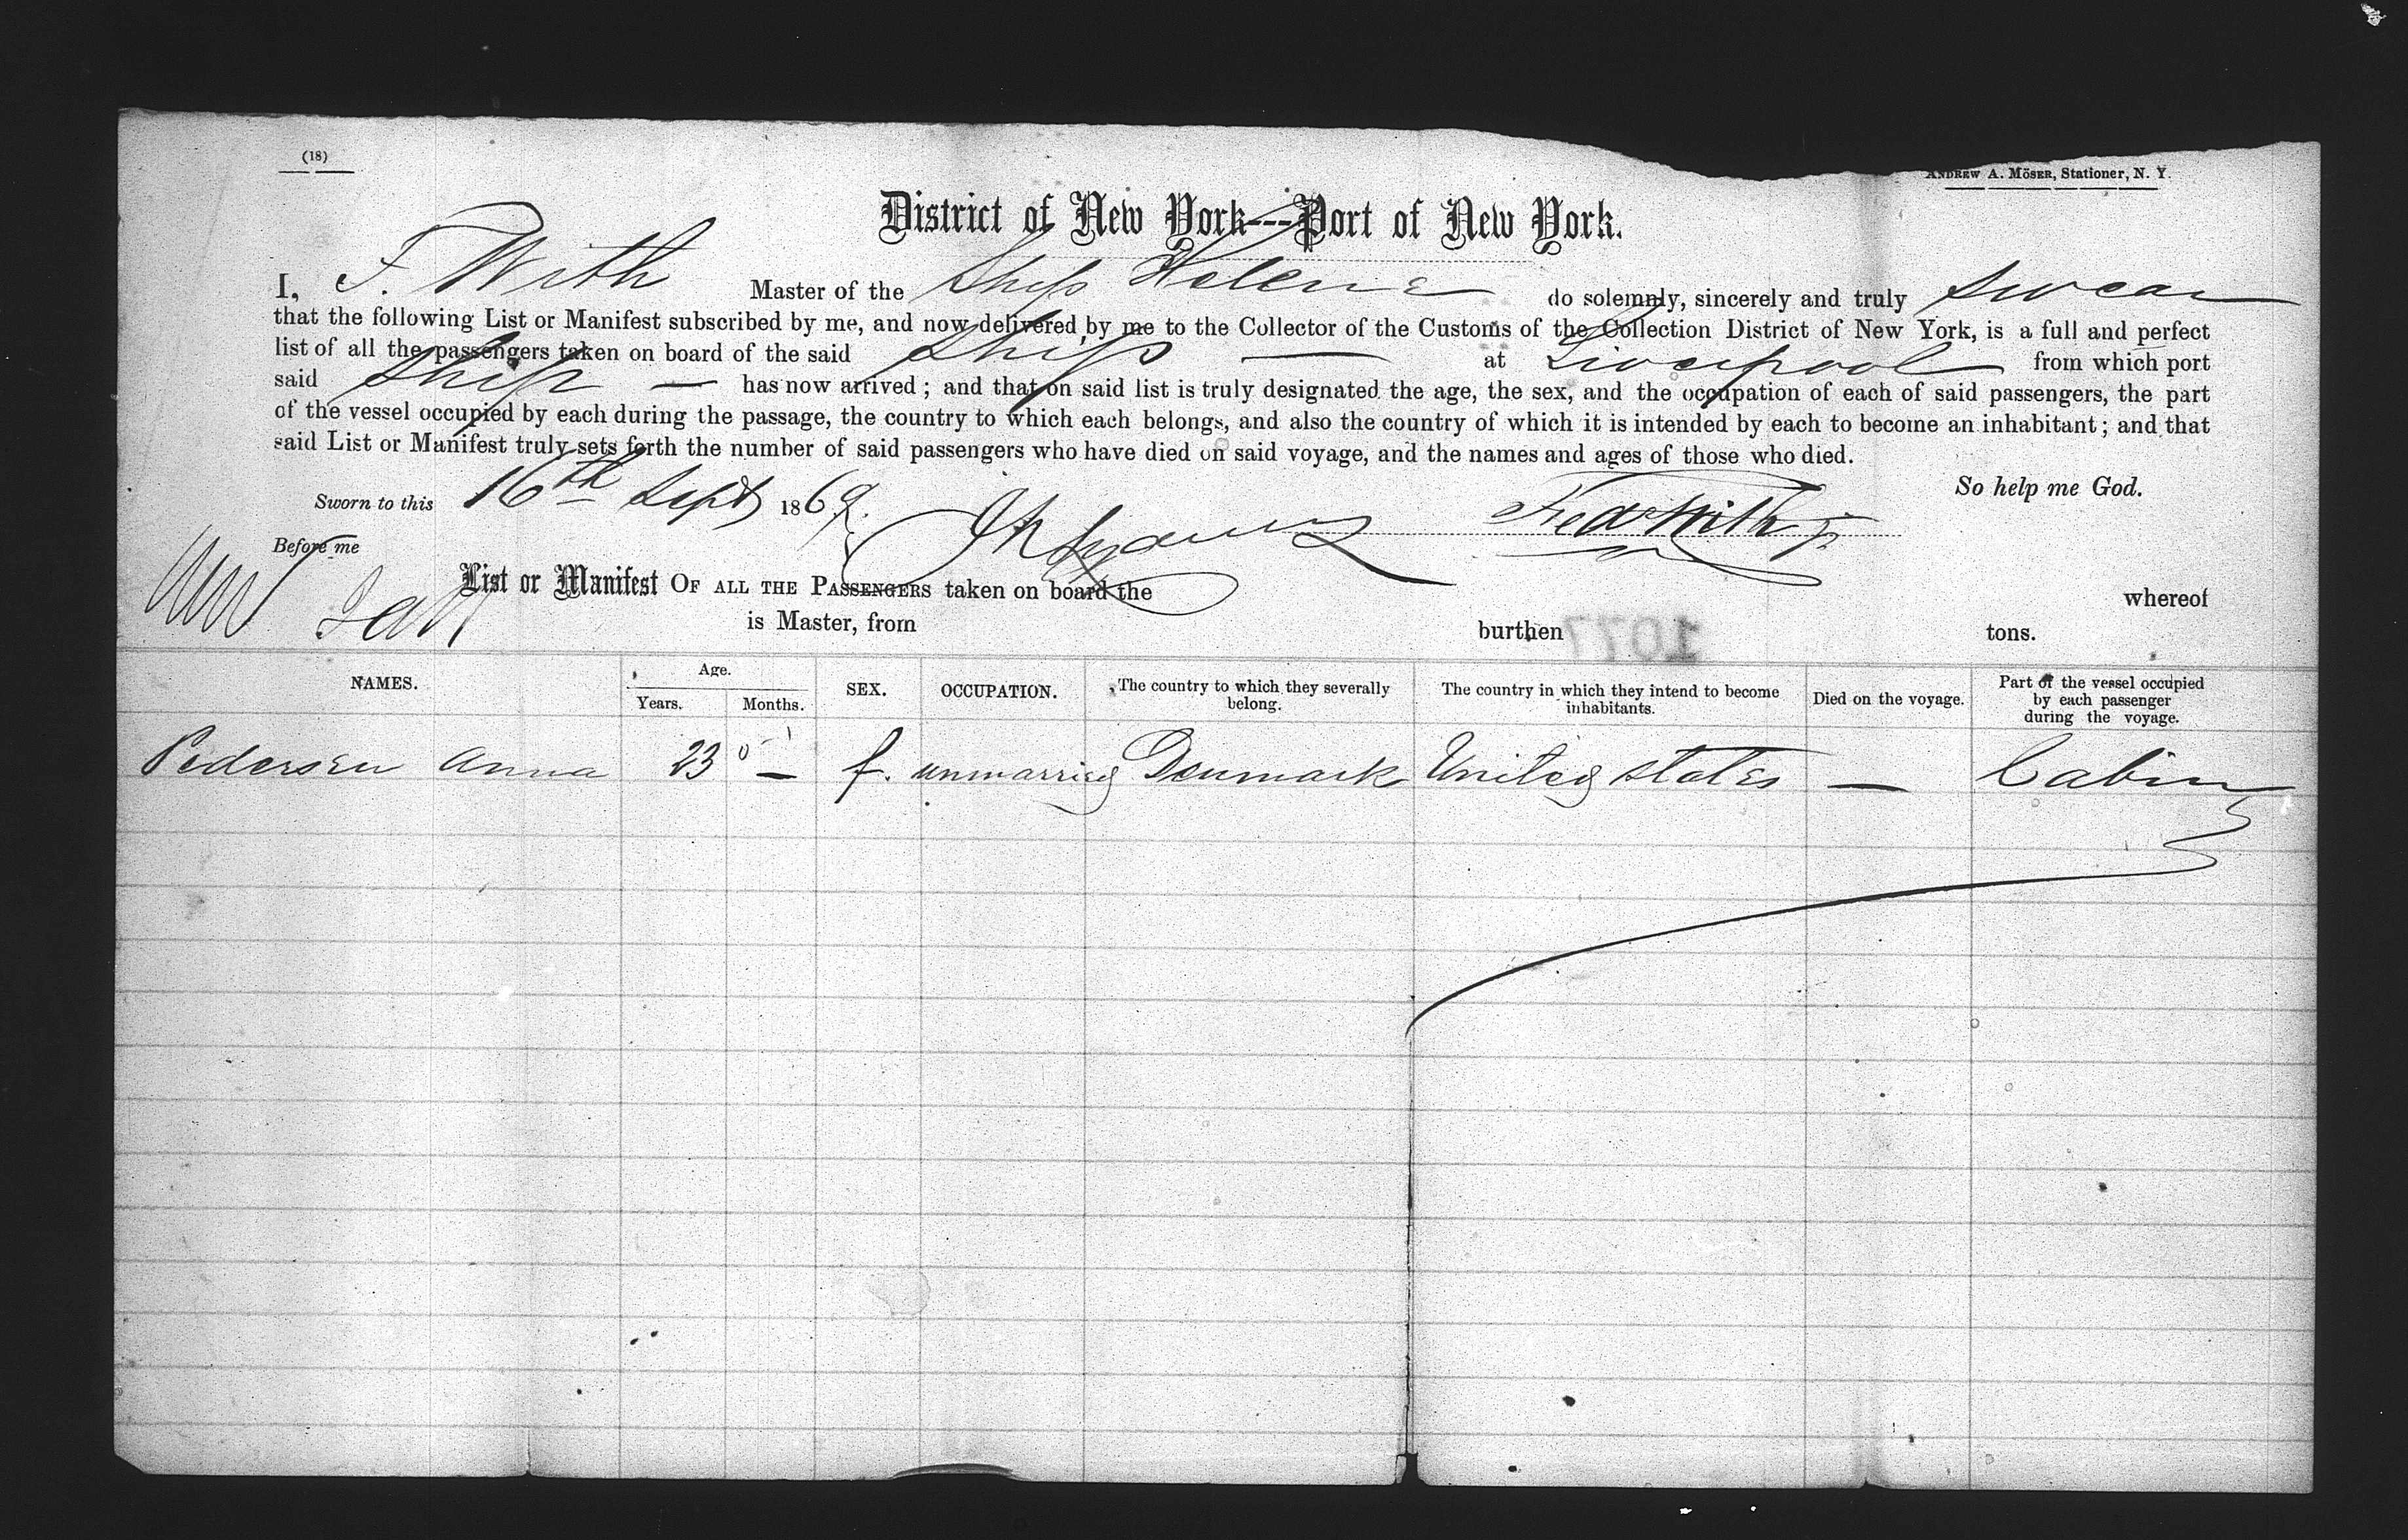 (18)
ANDREW A. MÖSER, Stationer, N. Y.
District of New York---Port of New York.
I, F. With Master of the Ship Helene do solemnly, sincerely and truly swear
that the following List or Manifest subscribed by me, and now delivered by me to the Collector of the Customs of the Collection District of New York, is a full and perfect
list of all the passengers taken on board of the said Ship — at Liverpool from which port
said Ship — has now arrived; and that on said list is truly designated the age, the sex, and the occupation of each of said passengers, the part
of the vessel occupied by each during the passage, the country to which each belongs, and also the country of which it is intended by each to become an inhabitant; and that
said List or Manifest truly sets forth the number of said passengers who have died on said voyage, and the names and ages of those who died.
So help me God.
Sworn to this 16th Sept 1869. Fred With Jr.
Before me
List or Manifest OF ALL THE PASSENGERS taken on board the whereof
is Master, from burthen 1077 tons.
NAMES. Age. Years. Months. SEX. OCCUPATION. The country to which they severally belong. The country in which they intend to become inhabitants. Died on the voyage. Part of the vessel occupied by each passenger during the voyage.
Pedersen Anna 23 — f. unmarried Denmark United States — Cabin